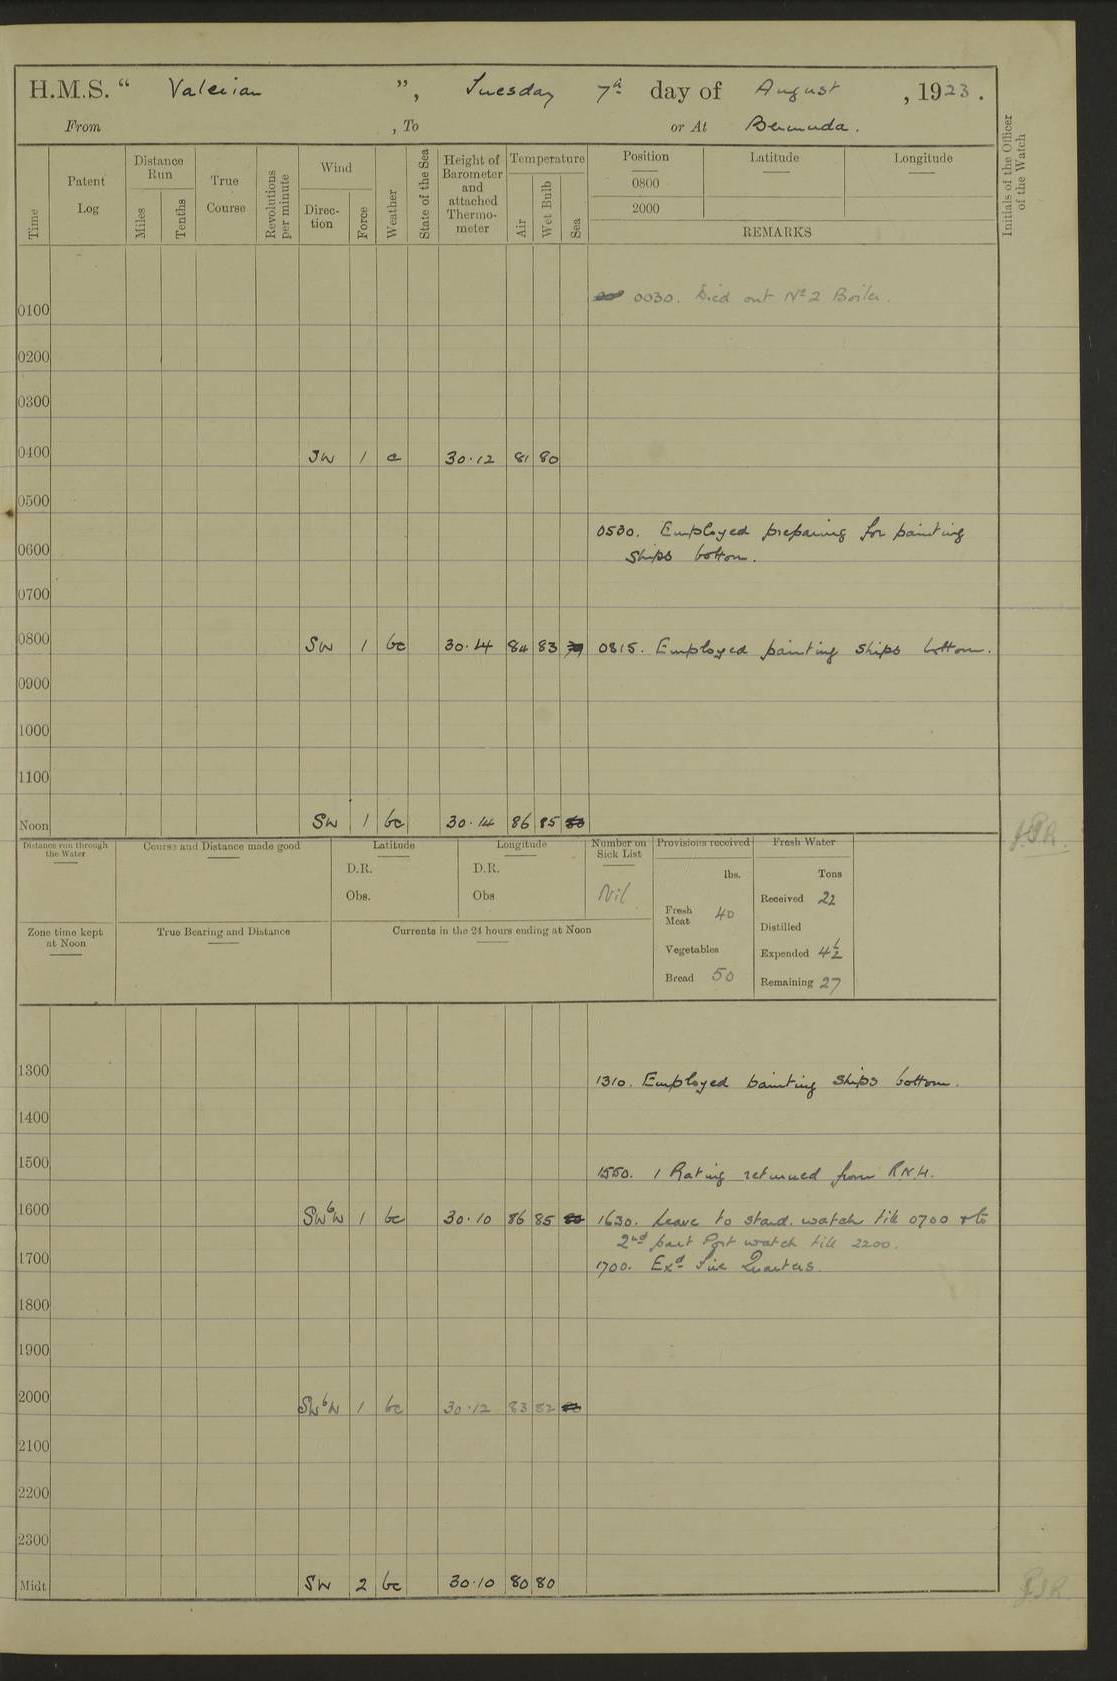 H.M.S. “ Valerian ”, Tuesday 7th day of August, 1923.
From , To or At Bermuda.
Time
Patent Log
Distance Run
Miles
Tenths
True Course
Revolutions per minute
Wind
Direction
Force
Weather
State of the Sea
Height of Barometer and attached Thermometer
Temperature
Air
Wet Bulb
Sea
Position
0800
2000
Latitude
Longitude
REMARKS
Initials of the Officer of the Watch
0030. Died out No 2 Boiler.
0100
0200
0300
0400 SW 1 c 30.12 81 80
0500
0530. Employed preparing for painting
0600
ships bottom.
0700
0800 SW 1 bc 30.14 84 83 0815. Employed painting ships bottom.
0900
1000
1100
Noon SW 1 bc 30.14 86 85
Distance run through the Water
Course and Distance made good
Latitude
D.R.
Obs.
Longitude
D.R.
Obs
Number on Sick List
Nil
Provisions received
lbs.
Fresh Meat 40
Vegetables
Bread 50
Fresh Water
Tons
Received 22
Distilled
Expended 4½
Remaining 27
Zone time kept at Noon
True Bearing and Distance
Currents in the 24 hours ending at Noon
1300
1310. Employed painting ships bottom.
1400
1500
1550. 1 Rating returned from R.N.H.
1600 SWbW 1 bc 30.10 86 85 1630. Leave to stard. watch till 0700 & to
2nd part Port watch till 2200.
1700
1700. Exd Fire Quarters.
1800
1900
2000 SWbW 1 bc 30.12 83 82
2100
2200
2300
Midt SW 2 bc 30.10 80 80